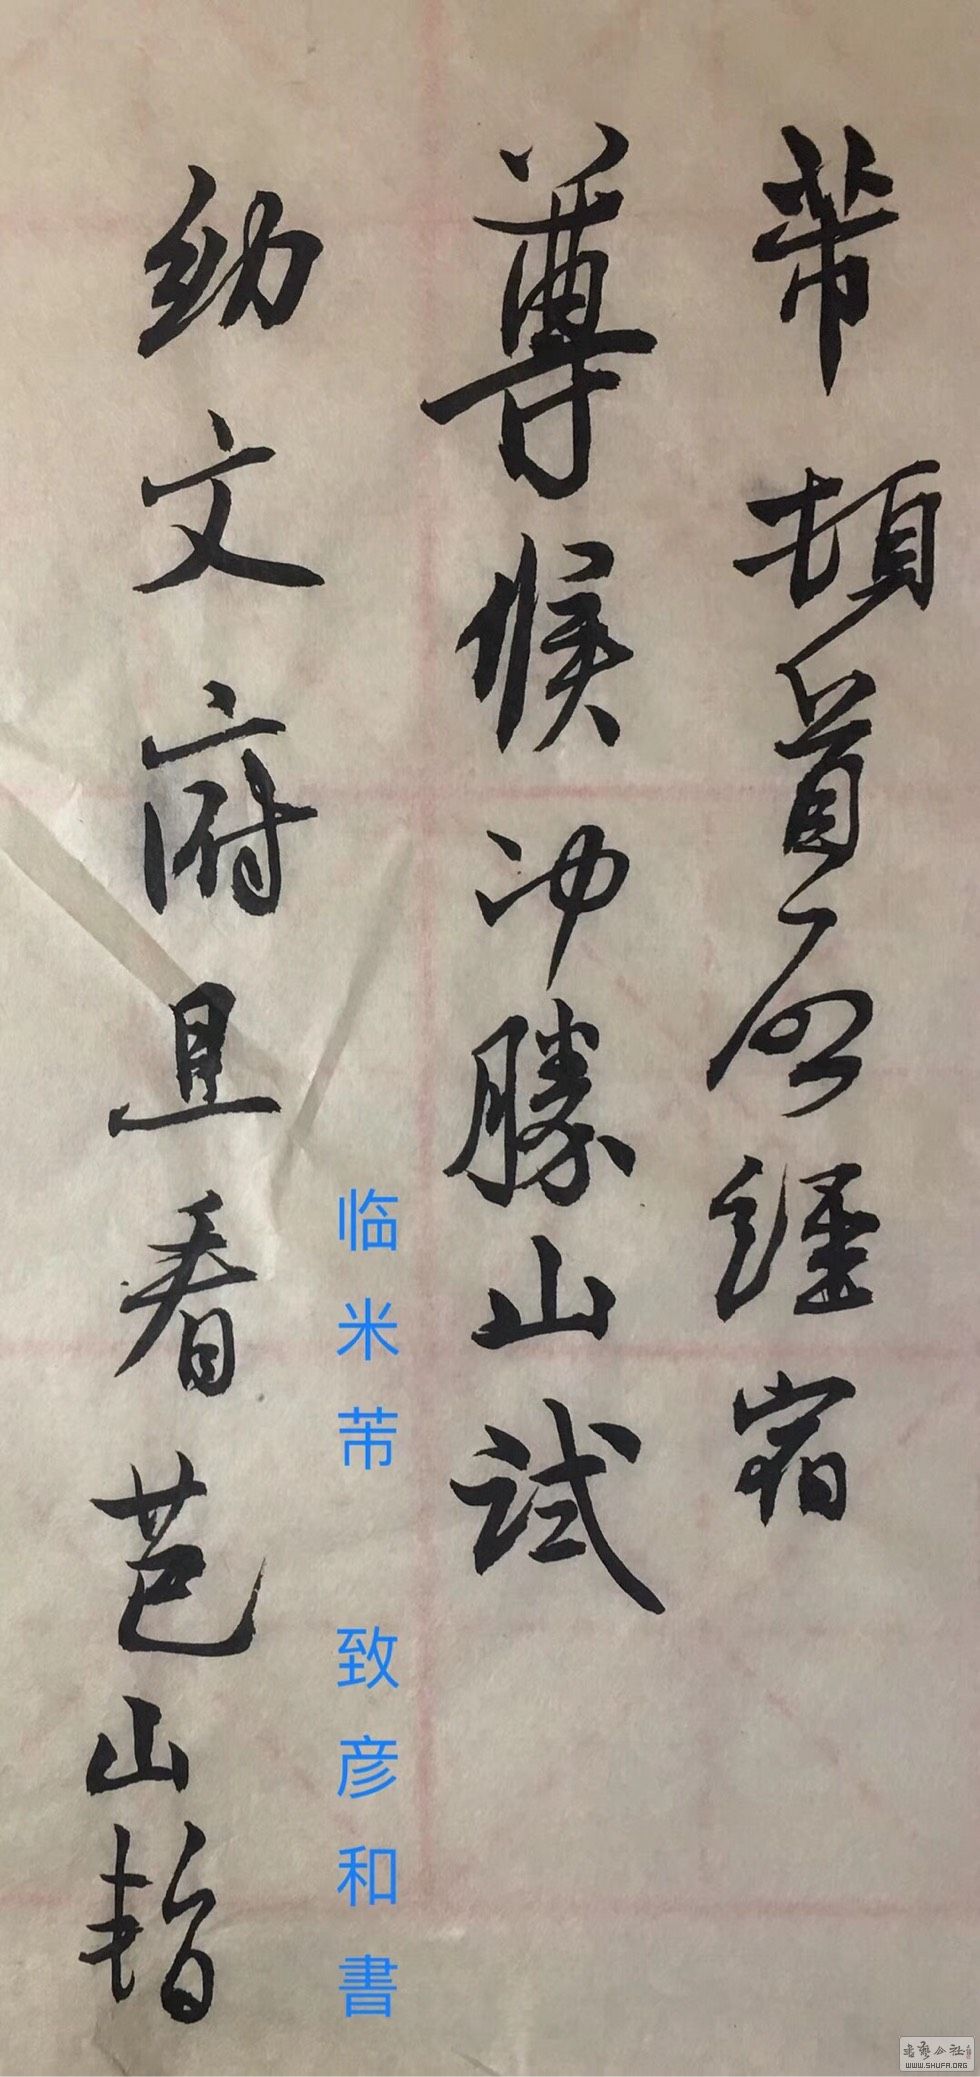 芾頓首再啓經宿
尊候沖勝山試
納文府且看芭山暫
临米芾 致彦和書
書藝公社
WWW.SHUFA.ORG